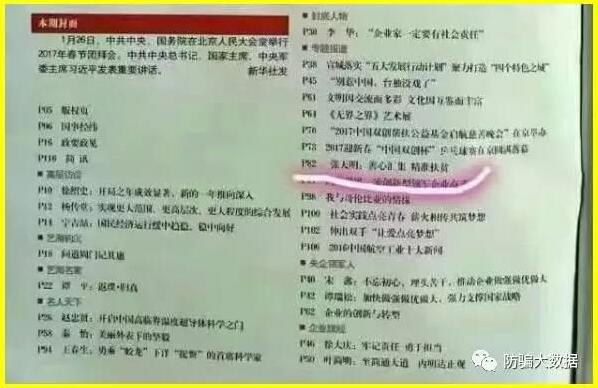 本期封面
1月26日，中共中央、国务院在北京人民大会堂举行
2017年春节团拜会。中共中央总书记、国家主席、中央军
委主席习近平发表重要讲话。
新华社发
P05 版权页
P06 国事经纬
P16 政要览
P110 简 讯
■ 高层访谈
P10 徐绍史：开局之年成效显著，新的一年推向深入
P12 杨传堂：实现更大范围、更高层次、更大程度的综合发展
P14 宁吉喆：国民经济运行缓中趋稳、稳中向好
■ 艺海钩沉
P18 问道周门记其庸
■ 艺海名家
P22 谭 平：返璞·归真
■ 名人天下
P26 赵忠贤：开启中国高临界温度超导体科学之门
P58 秦 怡：美丽外表下的坚毅
P94 王春生：勇乘“蛟龙”下洋“捉鳖”的首席科学家
■ 封底人物
P30 李 华：“企业家一定要有社会责任”
■ 专题报道
P38 宣城落实“五大发展行动计划” 聚力打造“四个特色之城”
P45 “别意中国，台独没戏了”
P61 文明因交流而多彩 文化因互鉴而丰富
P64 《无界之界》艺术展
P70 “2017中国双创帮扶公益基金启航慈善晚会”在京举办
P73 2017迎新春“中国双创杯”乒乓球赛在京圆满落幕
P82 张天明：善心汇集 精准扶贫
P98 我与哥伦比亚的情缘
P100 社会实践点亮青春 薪火相传共筑梦想
P102 伸出双手“让爱点亮梦想”
P106 2016中国航空工业十大新闻
■ 央企领军人
P40 宋 鑫：不忘初心、埋头苦干，推动企业做强做优做大
P42 谭瑞松：加快做强做优做大，强力支撑国家战略
P62 企业的创新与转型
■ 企业旗舰
P46 徐大庆：牢记责任 勇于担当
P50 叶简明：至简通大道 内明达正观
防骗大数据